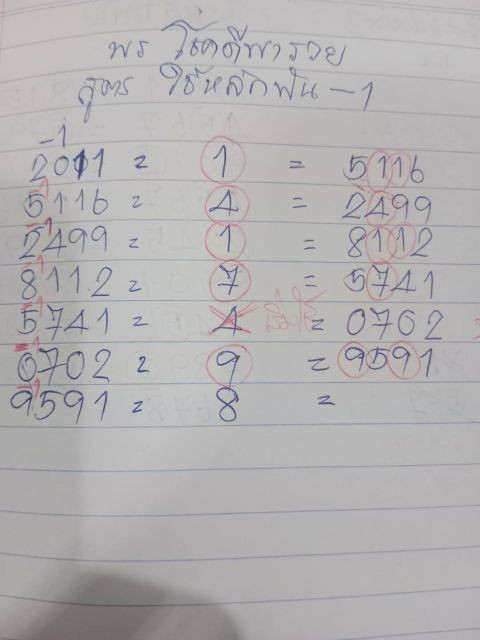 พร โชคดีพารวย
สูตร ใช้หลักพัน -1
-1
2011 = 1 = 5116
5116 = 4 = 2499
2499 = 1 = 8112
8112 = 7 = 5741
5741 = 4 = 0702
0702 = 9 = 9591
9591 = 8 =